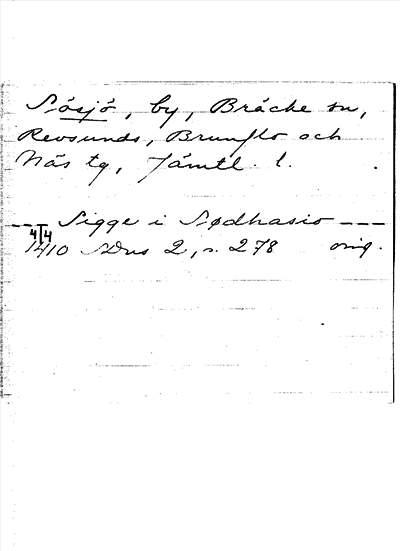 Sösjö, by, Bräcke sn,
Revsunds, Brunflo och
Näs tg, Jämtl. l.
--- Sigge i Sødhasio ---
4/4
1410 SDns 2, s. 278 orig.